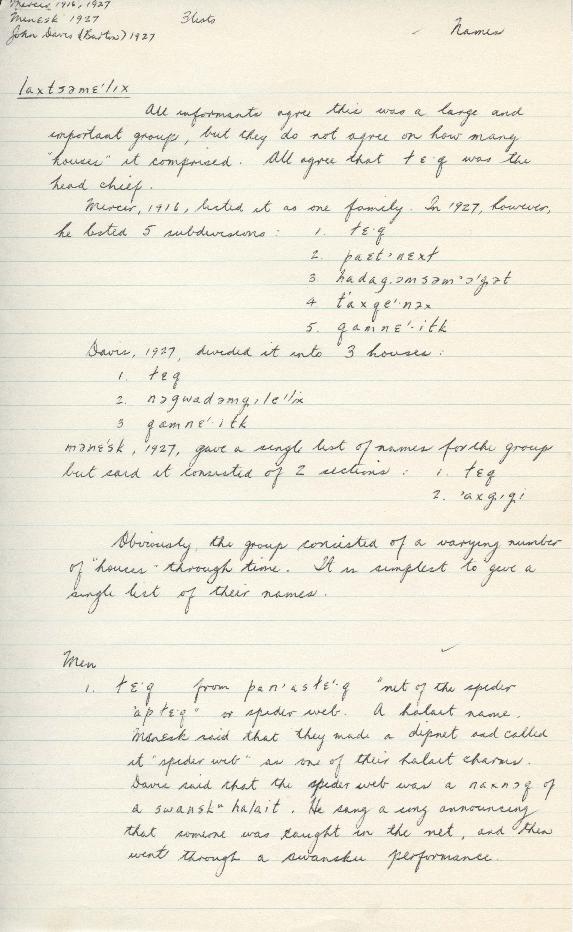 Mercer 1916, 1927
Menesk 1927 3 lists Names
John Davis (Barton) 1927
laxtsəmɛ'lıx
All informants agree this was a large and
important group, but they do not agree on how many
"houses" it comprised. All agree that tɛ·q was the
head chief.
Mercer, 1916, listed it as one family. In 1927, however,
he listed 5 subdivisions: 1. tɛ·q
2. paɛt'nɛxt
3 hadag.əmsəm'ə'g.ət
4 t'axqe'·nəx
5. qamnɛ'·itk
Davis, 1927, divided it into 3 houses:
1. tɛq
2. nəgwadəmg,lɛ'lix
3 qamnɛ'·itk
mənɛ'sk, 1927, gave a single list of names for the group
but said it consisted of 2 sections: 1. tɛq
2. 'axg,ıg,i
Obviously, the group consisted of a varying number
of "houses" through time. It is simplest to give a
single list of their names.
Men
1. tɛ·q from pan'astɛ'·q "net of the spider
'aptɛ·q" or spider web. A halait name.
Menesk said that they made a dipnet and called
it "spider web" as one of their halait charms.
Davis said that the spider web was a naxnəq of
a swanskᵘ halait. He sang a song announcing
that someone was caught in the net, and then
went through a swansku performance.